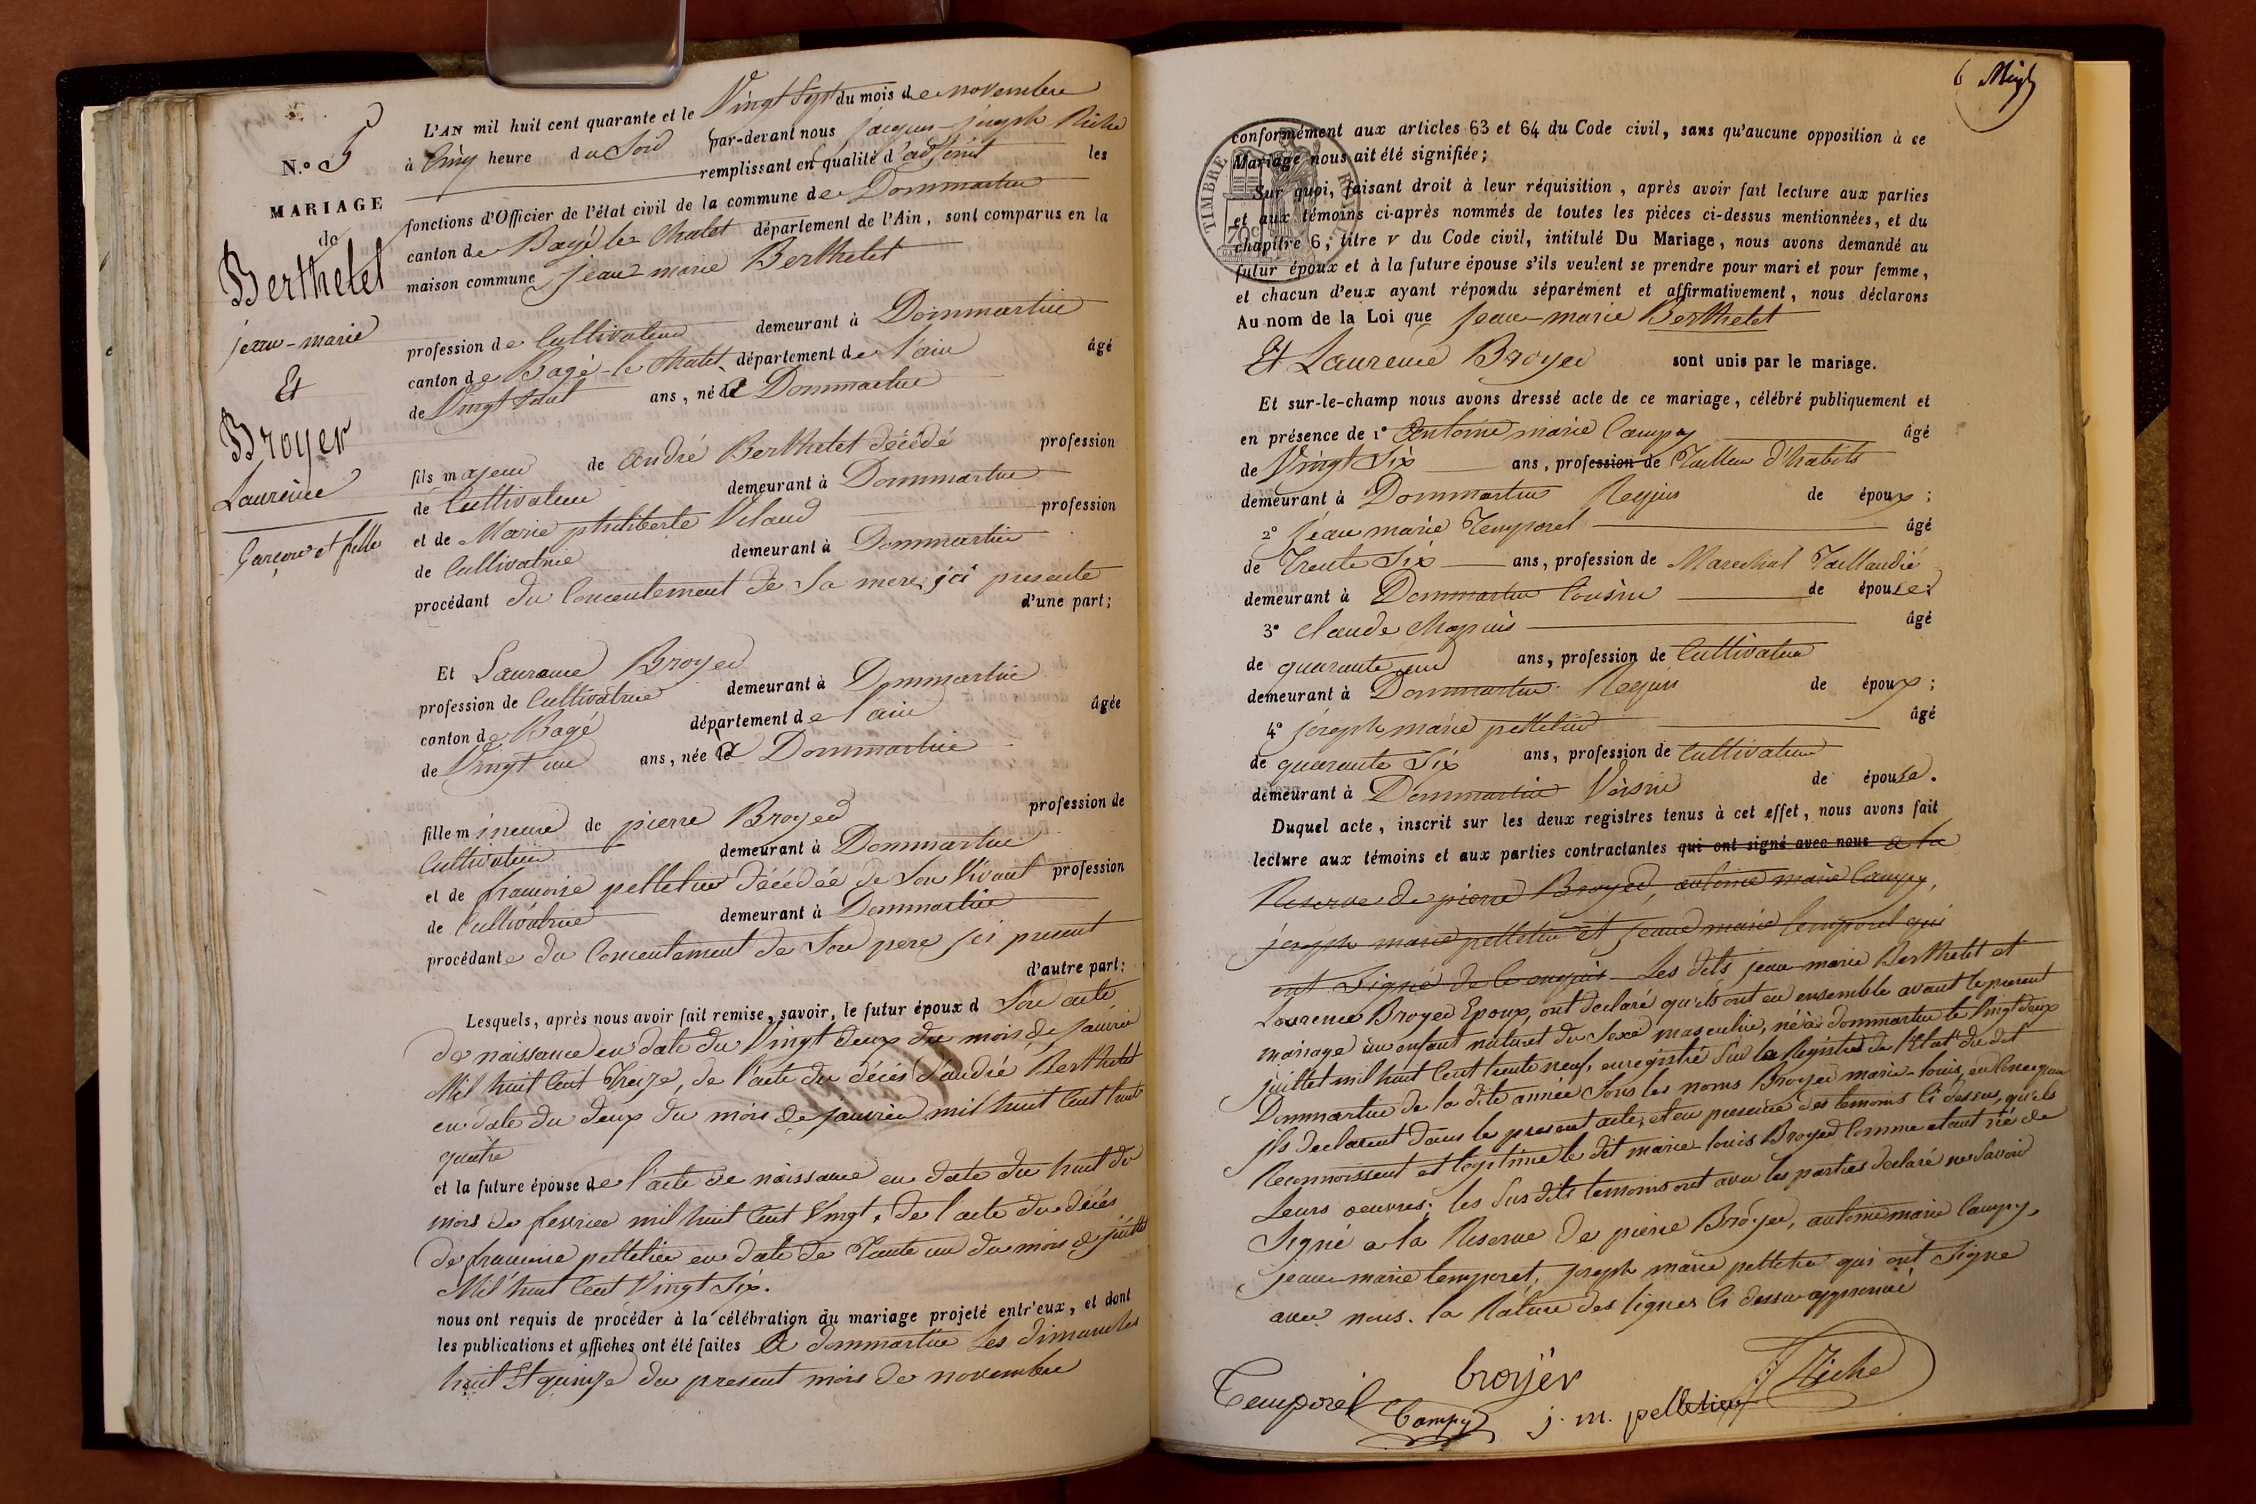 N.º 5
MARIAGE
de
Berthelet
jean-marie
Et
Broyer
Laurence
Garçon et fille
L'AN mil huit cent quarante et le Vingt Sept du mois de novembre
à Cinq heure du Soir par-devant nous jacques-joseph Riche
remplissant en qualité d'adjoint les
fonctions d'Officier de l'état civil de la commune de Dommartin
canton de Bagé le Chatel département de l'Ain, sont comparus en la
maison commune jean-marie Berthelet
profession de Cultivateur demeurant à Dommartin
canton de Bagé-le Chatel, département de l'ain âgé
de Vingt Sept ans, né à Dommartin
fils majeur de andré Berthelet décédé profession
de Cultivateur demeurant à Dommartin
et de Marie philiberte Velaud profession
de Cultivatrice demeurant à Dommartin
procédant du Concentement de Sa mere, jci presente
d'une part;
Et Laurence Broyer
profession de Cultivatrice demeurant à Dommartin
canton de Bagé département de l'ain âgée
de Vingt un ans, née à Dommartin
fille mineure de pierre Broyer profession de
Cultivateur demeurant à Dommartin
et de francoise pelletier décédée de Son Vivant profession
de Cultivatrice demeurant à Dommartin
procédante du Concentement de Son pere jci present
d'autre part;
Lesquels, après nous avoir fait remise, savoir, le futur époux d Son acte
de naissance en date du Vingt deux du mois de janvier
Mil huit Cent Treize, de l'acte du décès d'andré Berthelet
en date du deux du mois de janvier mil huit Cent trente
quatre
et la future épouse de l'acte de naissance en date du huit du
mois de fevrier mil huit Cent Vingt, de l'acte du décès
de francoise pelletier en date de Trente un du mois de juillet
Mil huit Cent Vingt Six.
nous ont requis de procéder à la célébration du mariage projeté entr'eux, et dont
les publications et affiches ont été faites A dommartin Les dimanches
huit Et quinze du present mois de novembre
6
TIMBRE
conformément aux articles 63 et 64 du Code civil, sans qu'aucune opposition à ce
Mariage nous ait été signifiée;
Sur quoi, faisant droit à leur réquisition, après avoir fait lecture aux parties
et aux témoins ci-après nommés de toutes les pièces ci-dessus mentionnées, et du
chapitre 6, titre V du Code civil, intitulé Du Mariage, nous avons demandé au
futur époux et à la future épouse s'ils veulent se prendre pour mari et pour femme,
et chacun d'eux ayant répondu séparément et affirmativement, nous déclarons
Au nom de la Loi que Jean-marie Berthelet
Et Laurence Broyer sont unis par le mariage.
Et sur-le-champ nous avons dressé acte de ce mariage, célébré publiquement et
en présence de 1º Antoine marie Campy âgé
de Vingt Six ans, profession de Tailleur d'habits
demeurant à Dommartin de époux;
2º jean marie Temporel âgé
de Trente Six ans, profession de Marechal Taillandié
demeurant à Dommartin Cousin de épouse;
3º Claude Chapuis âgé
de quarante un ans, profession de Cultivateur
demeurant à Dommartin de époux;
4º joseph marie pelletier âgé
de quarante Six ans, profession de Cultivateur
demeurant à Dommartin Voisin de épouse.
Duquel acte, inscrit sur les deux registres tenus à cet effet, nous avons fait
lecture aux témoins et aux parties contractantes qui ont signé avec nous a la
Reserve de pierre Broyer, antoine marie Campy,
joseph marie pelletier et jean marie temporel qui
ont Signé de Ce enquis Les dits jean marie Berthelet et
Laurence Broyer Epoux, ont declaré qu'ils ont eu ensemble avant le present
mariage un enfant naturel du Sexe masculin, né à dommartin le Vingt deux
juillet mil huit Cent trente neuf, enregistré Sur les Registres de l'Etat du dit
Dommartin de la dite année Sous les noms Broyer marie-louis, en Consequence
jls declarent dans le present acte, et en presence des temoins Ci dessus, qu'ils
Reconnoissent et legitime le dit marie-louis Broyer Comme etant né de
Leurs oeuvres; les Sus dits temoins ont avec les parties declaré ne Savoir
Signé a la Reserve de pierre Broyer, antoine marie Campy,
jean-marie temporel, joseph marie pelletier qui ont Signe
avec nous. la Rature des lignes Ci dessus approuvé
Temporel
Campy
broyer
j. m. pelletier
J Riche